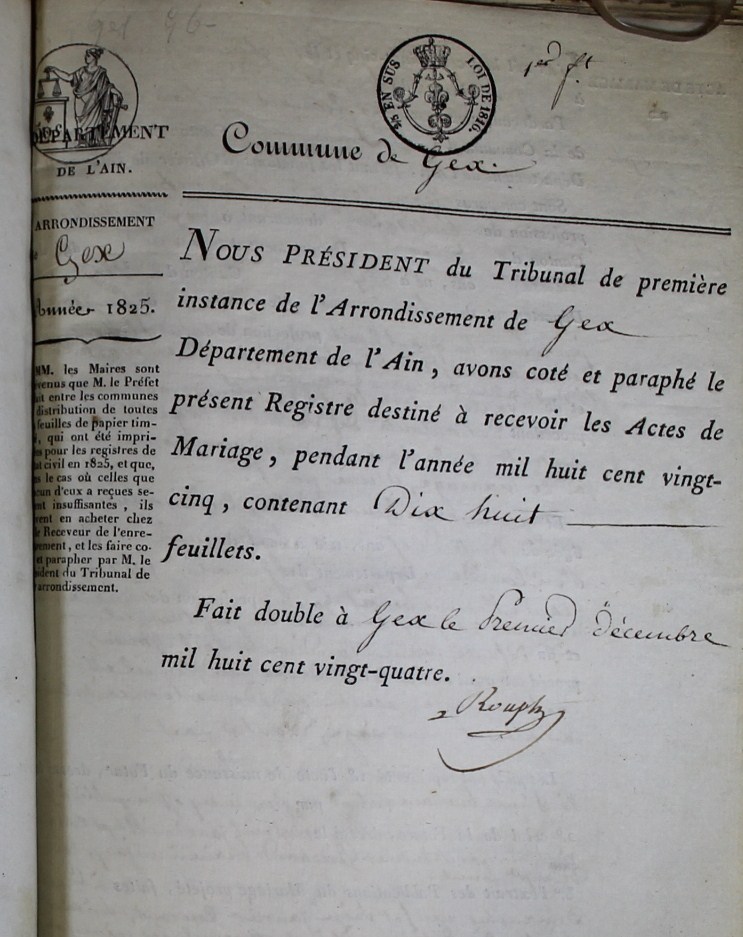 DÉPARTEMENT
DE L'AIN.
3/5 EN SUS LOI DE 1816.
1er ft
Commune de Gex.
ARRONDISSEMENT
Gex
Année 1825.
MM. les Maires sont
venus que M. le Préfet
entre les communes
distribution de toutes
feuilles de papier tim-
, qui ont été impri-
pour les registres de
civil en 1825, et que,
le cas où celles que
d'eux a reçues se-
insuffisantes, ils
en acheter chez
Receveur de l'enre-
, et les faire co-
et parapher par M. le
du Tribunal de
arrondissement.
NOUS PRÉSIDENT du Tribunal de première
instance de l'Arrondissement de Gex
Département de l'Ain, avons coté et paraphé le
présent Registre destiné à recevoir les Actes de
Mariage, pendant l'année mil huit cent vingt-
cinq, contenant Dix huit
feuillets.
Fait double à Gex le Premier Décembre
mil huit cent vingt-quatre.